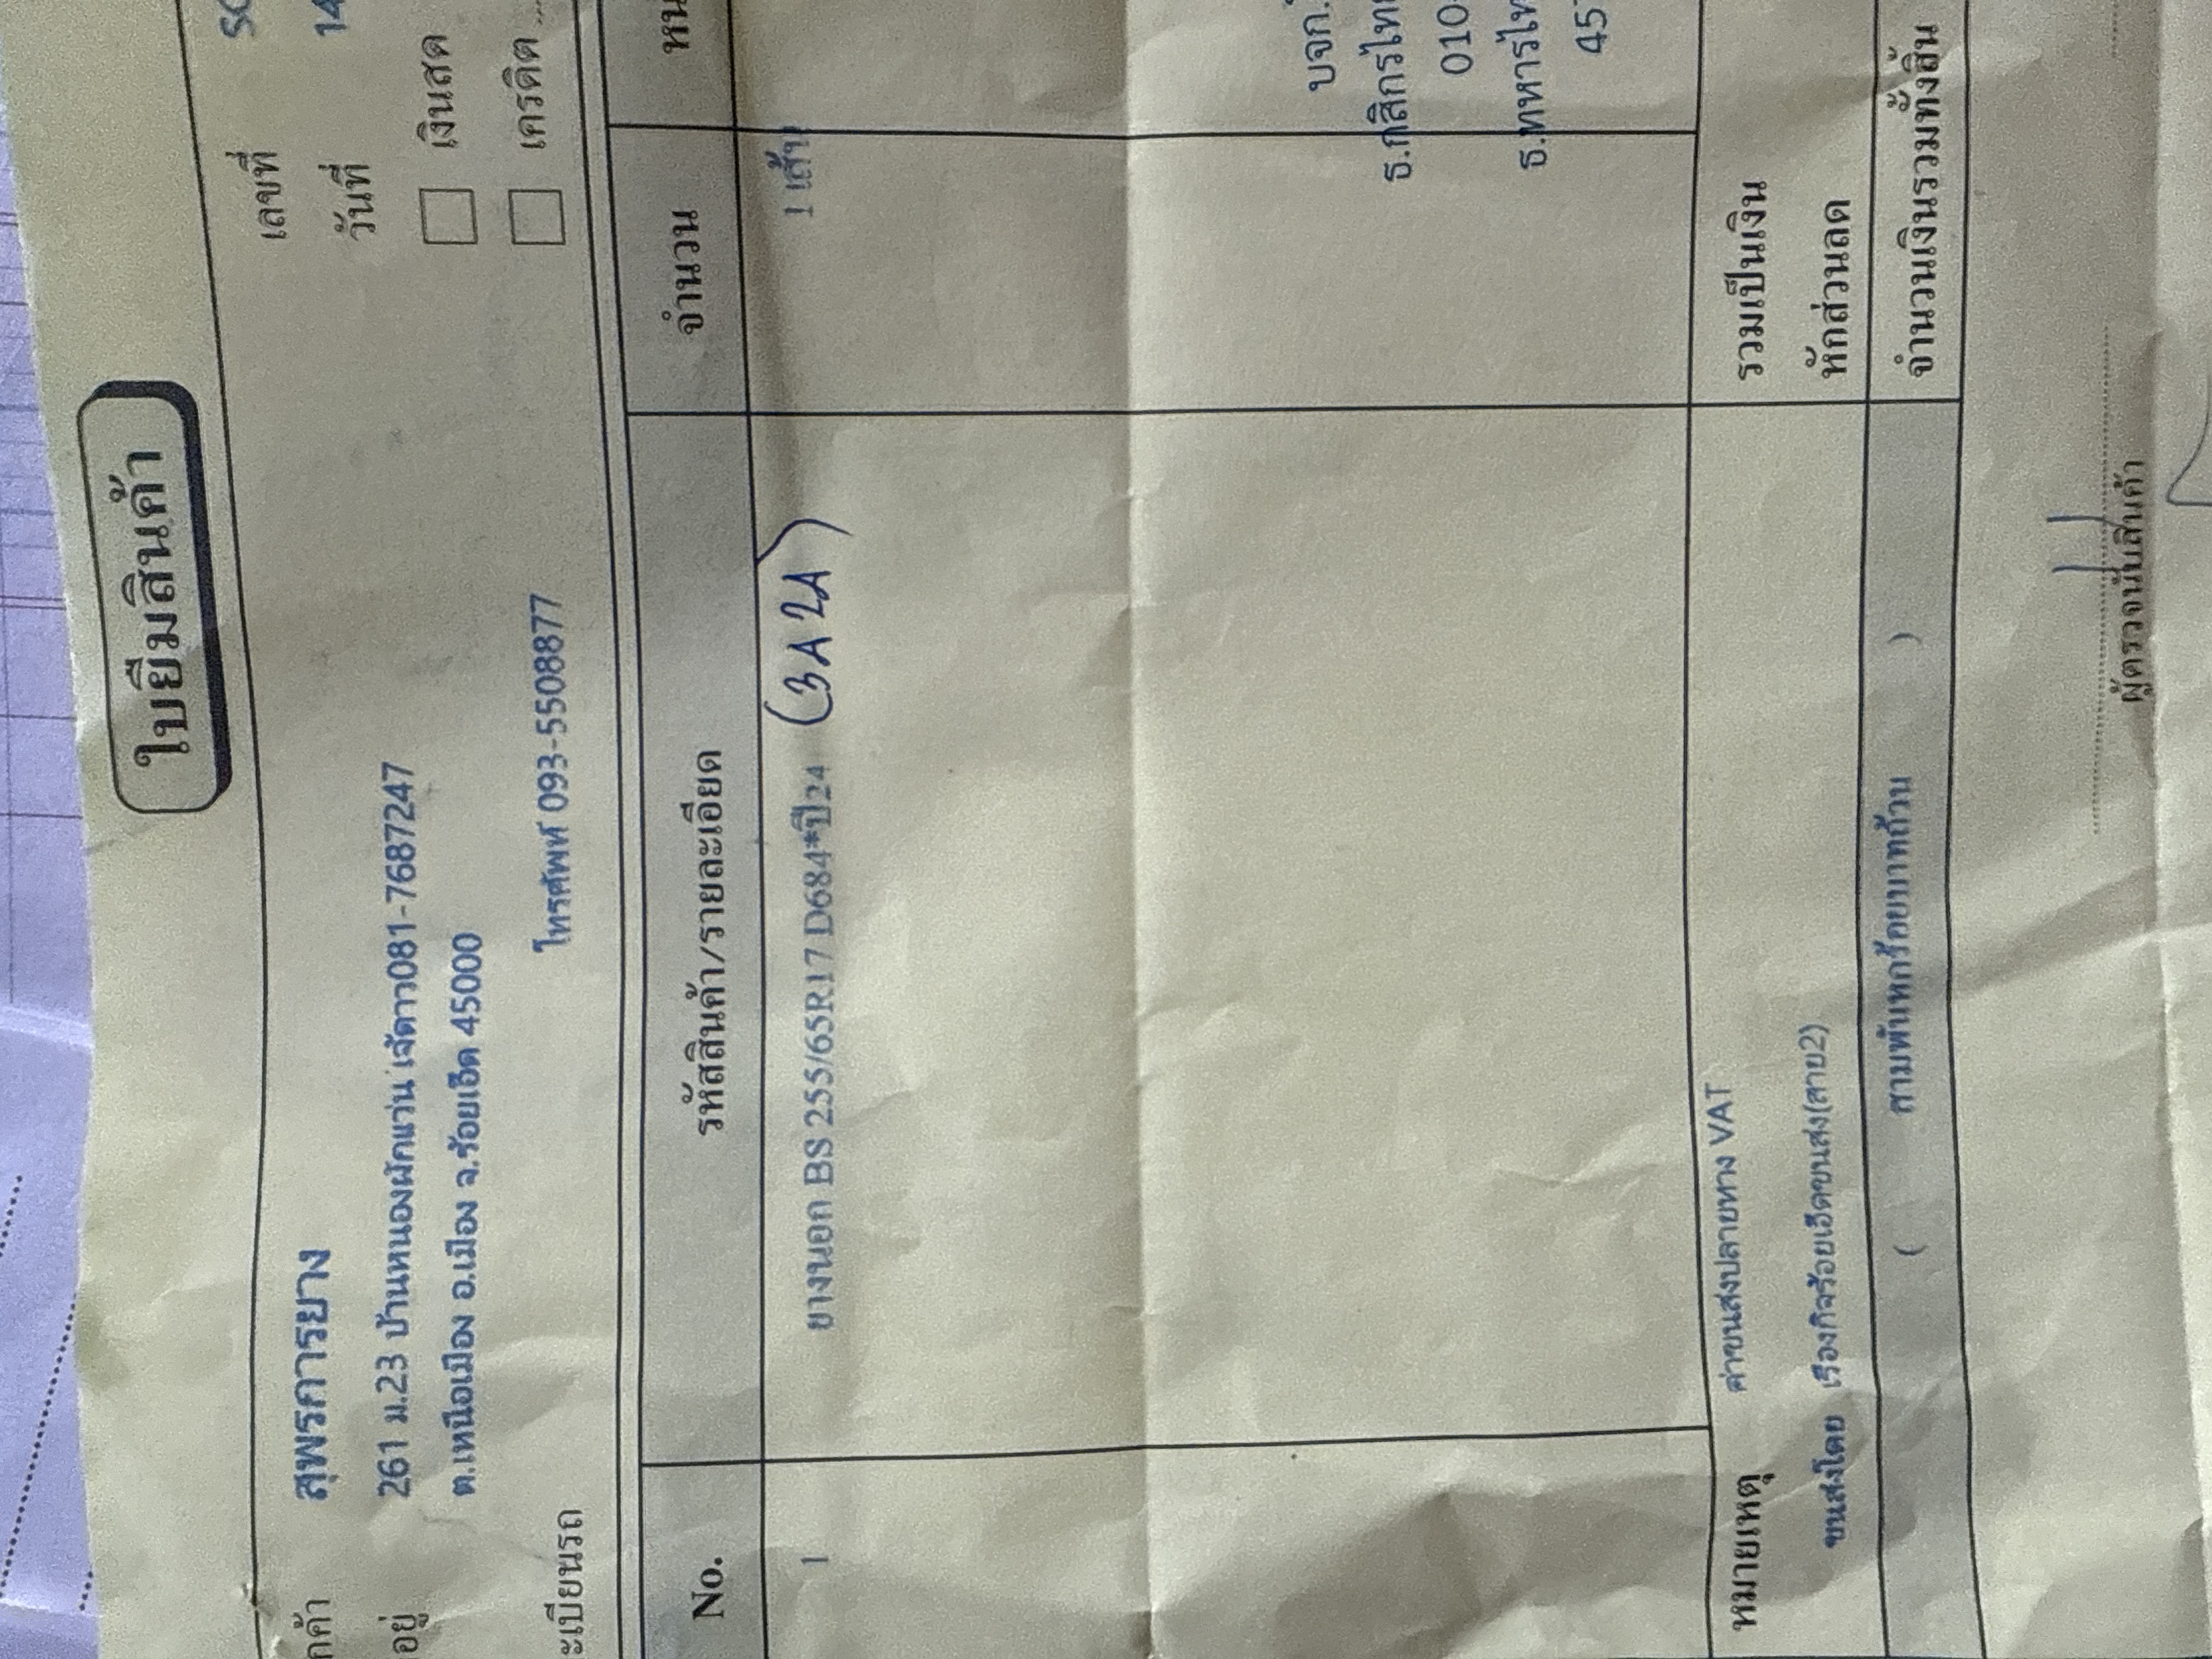 ใบยืมสินค้า
กค้า สุพรการยาง เลขที่
อยู่ 261 ม.23 บ้านหนองผักแว่น เจ๊ดาว081-7687247 วันที่ 14
ต.เหนือเมือง อ.เมือง จ.ร้อยเอ็ด 45000 เงินสด
ะเบียนรถ โทรศัพท์ 093-5508877 เครดิต
No. รหัสสินค้า/รายละเอียด จำนวน หน
1 ยางนอก BS 255/65R17 D684*ปี24 (3A2A) 1 เส้น
บจก.
ธ.กสิกรไทย
010
ธ.ทหารไท
45
หมายเหตุ ค่าขนส่งปลายทาง VAT รวมเป็นเงิน
ขนส่งโดย เรืองกิจร้อยเอ็ดขนส่ง(สาย2) หักส่วนลด
( สามพันหกร้อยบาทถ้วน ) จำนวนเงินรวมทั้งสิ้น
ผู้ตรวจนับสินค้า